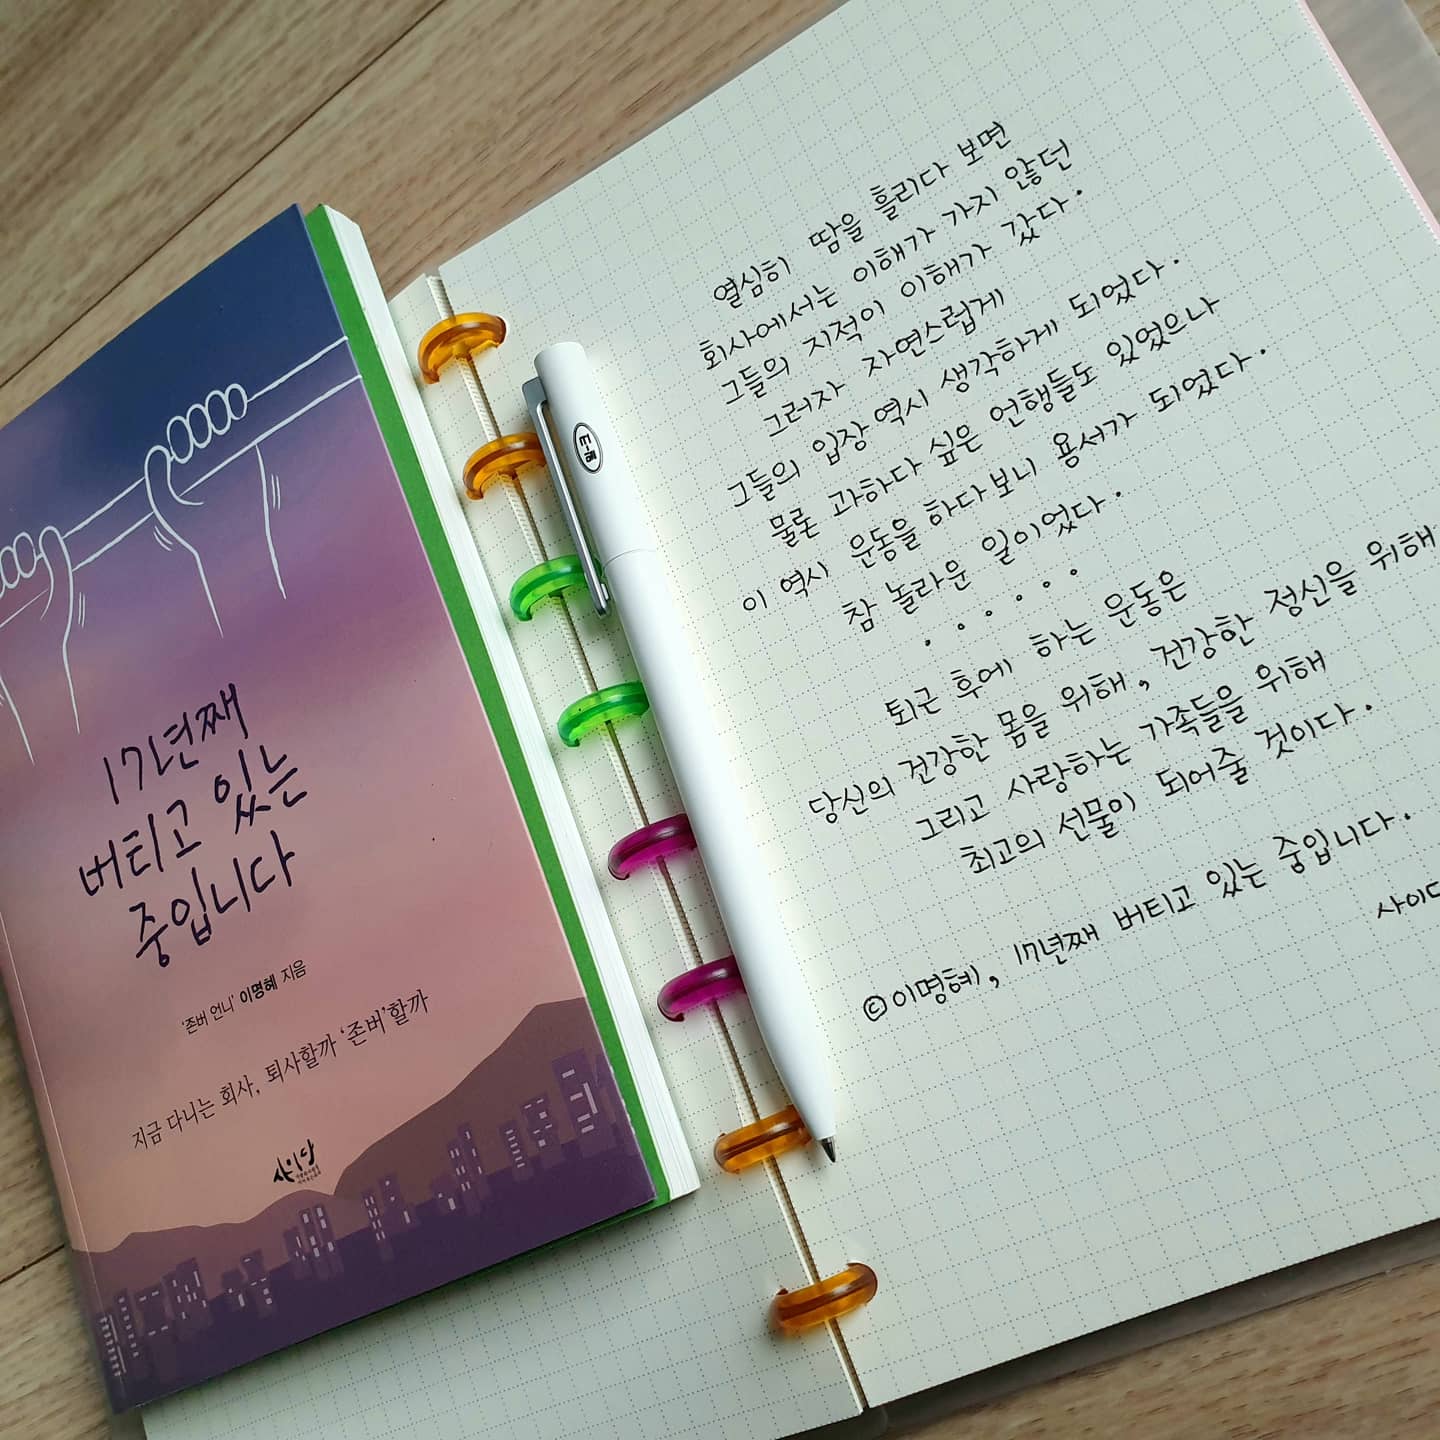 17년째
버티고 있는
중입니다
'존버 언니' 이명혜 지음
지금 다니는 회사, 퇴사할까 '존버'할까
사이다
열심히 땀을 흘리다 보면
회사에서는 이해가 가지 않던
그들의 지적이 이해가 갔다.
그러자 자연스럽게
그들의 입장 역시 생각하게 되었다.
물론 과하다 싶은 언행들도 있었으나
이 역시 운동을 하다보니 용서가 되었다.
참 놀라운 일이었다.
. . . . . .
퇴근 후에 하는 운동은
당신의 건강한 몸을 위해, 건강한 정신을 위해
그리고 사랑하는 가족들을 위해
최고의 선물이 되어줄 것이다.
©이명혜, 17년째 버티고 있는 중입니다.
사이다